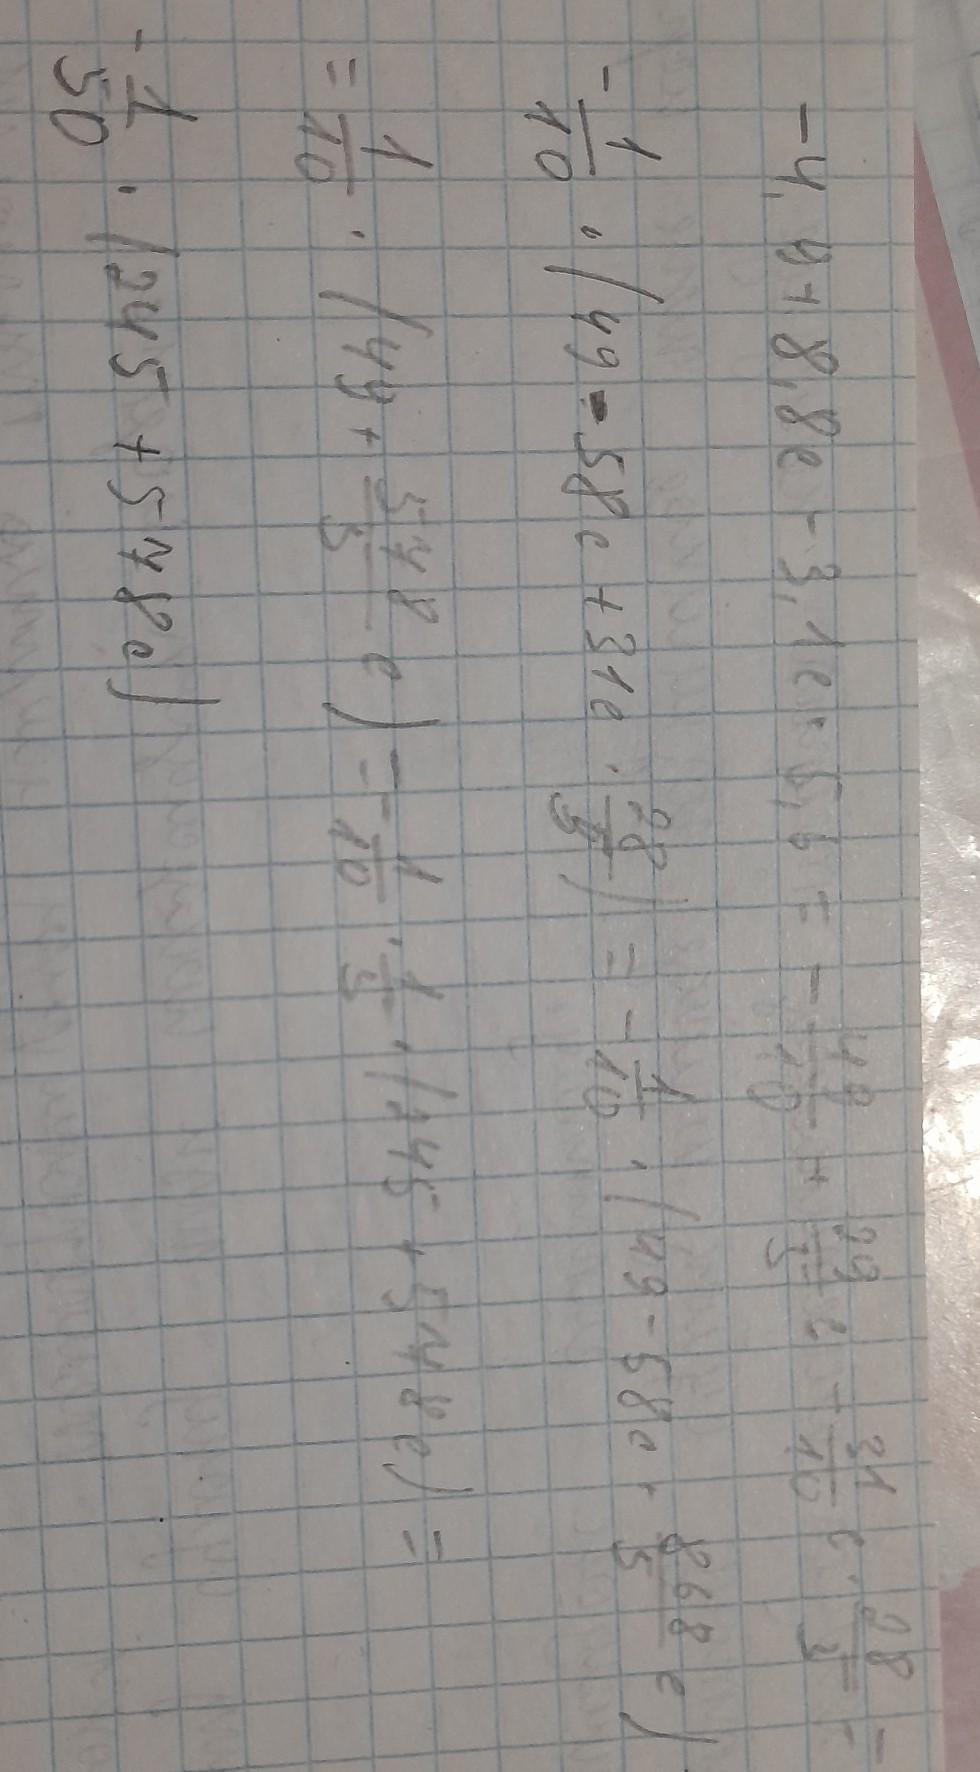 -4,9+8,8c-3,1c·5,6 = -49/10 + 29/5 c - 31/10 c · 28/5 =
-1/10 · (49-58c+31c · 28/5) = -1/10 · (49-58c+868/5 c)
= 1/10 · (49+578/5 c) = -1/10 · 1/5 · (245+578c) =
-1/50 · (245+578c)